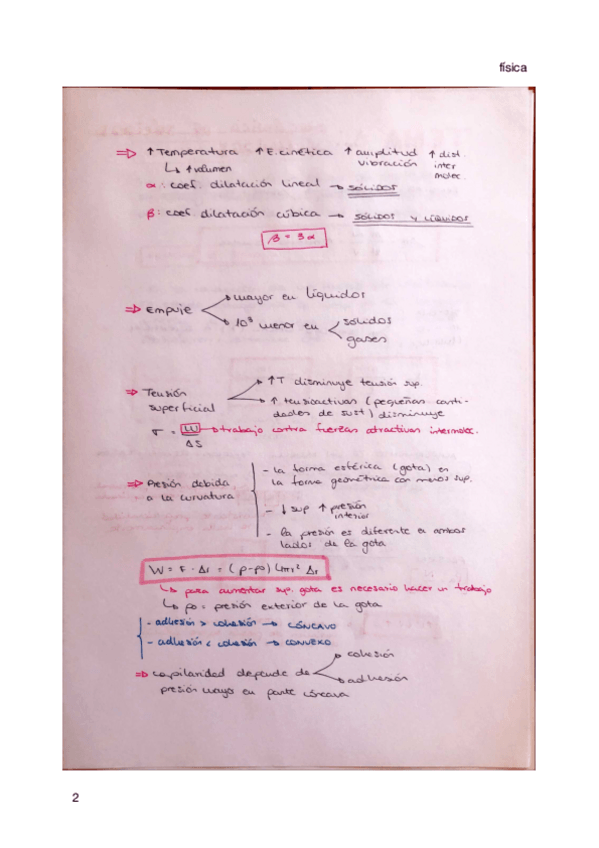 física
⇒ ↑ Temperatura ↑ E. cinética ↑ amplitud vibración ↑ dist. inter molec.
↳ ↑ volumen
α: coef. dilatación lineal → sólidos
β: coef dilatación cúbica → sólidos y líquidos
β = 3α
⇒ Empuje
mayor en líquidos
10³ menor en
sólidos
gases
⇒ Tensión superficial
↑T disminuye tensión sup.
↑ tensioactivas (pequeñas canti-
dades de sust) disminuye
σ = W/ΔS → trabajo contra fuerzas atractivas intermolec.
⇒ Presión debida
a la curvatura
- la forma esférica (gota) es
la forma geométrica con menos sup.
- ↓ sup ↑ presión interior
- la presión es diferente a ambos
lados de la gota
W = F · Δr = (p-p₀) 4πr² Δr
↳ para aumentar sup. gota es necesario hacer un trabajo
↳ p₀ = presión exterior de la gota
- adhesión > cohesión → CÓNCAVO
- adhesión < cohesión → CONVEXO
⇒ capilaridad depende de
cohesión
adhesión
presión mayor en parte cóncava
2